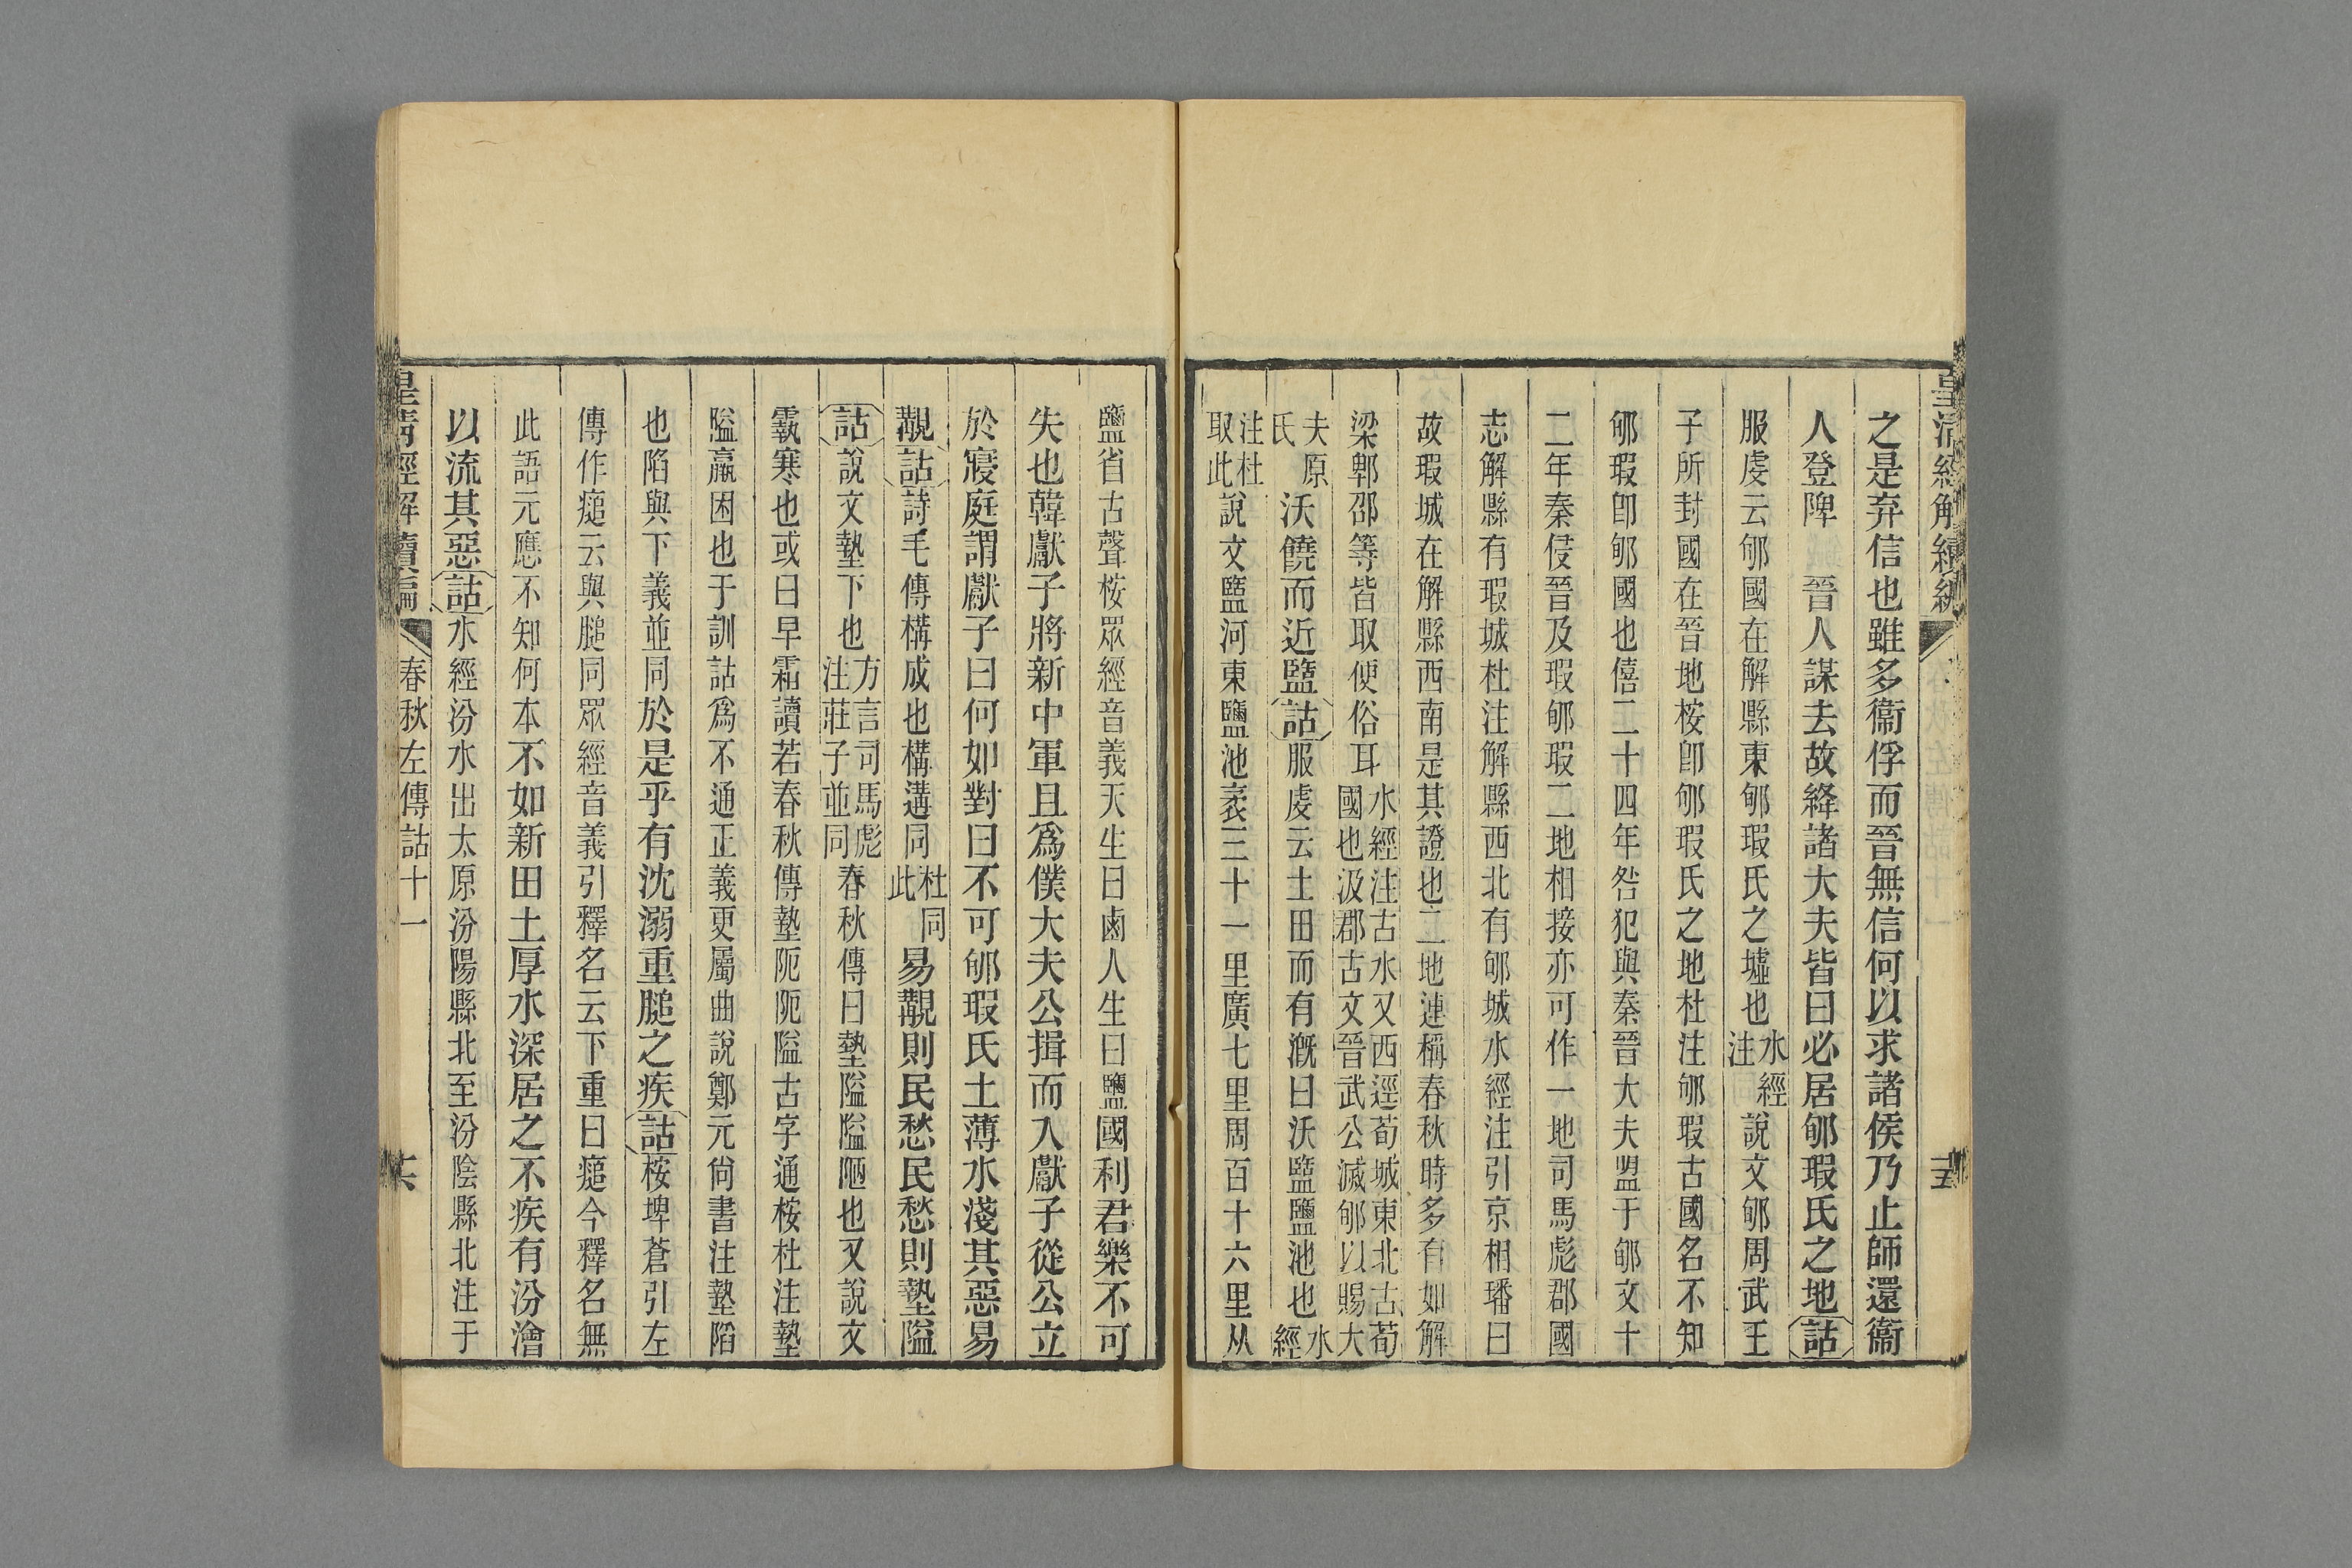 皇清經解續編
十五
之是弃信也雖多衞俘而晉無信何以求諸侯乃止師還衞
人登陴 晉人謀去故絳諸大夫皆曰必居郇瑕氏之地詁
服虔云郇國在解縣東郇瑕氏之墟也水經注說文郇周武王
子所封國在晉地桉卽郇瑕氏之地杜注郇瑕古國名不知
郇瑕卽郇國也僖二十四年咎犯與秦晉大夫盟于郇文十
二年秦侵晉及瑕郇瑕二地相接亦可作一地司馬彪郡國
志解縣有瑕城杜注解縣西北有郇城水經注引京相璠曰
故瑕城在解縣西南是其證也二地連稱春秋時多有如解
梁郫邵等皆取便俗耳水經注古水又西逕荀城東北古荀國也汲郡古文晉武公滅郇以賜大
夫原氏沃饒而近盬詁服虔云土田而有漑曰沃盬鹽池也水經
注杜取此說文盬河東鹽池袤三十一里廣七里周百十六里从
鹽省古聲桉眾經音義天生曰鹵人生曰鹽國利君樂不可
失也韓獻子將新中軍且爲僕大夫公揖而入獻子從公立
於寢庭謂獻子曰何如對曰不可郇瑕氏土薄水淺其惡易
覯詁詩毛傳構成也構遘同杜同此易覯則民愁民愁則墊隘
詁說文墊下也方言司馬彪注莊子並同春秋傳曰墊隘隘陋也又說文
霿寒也或曰早霜讀若春秋傳墊阨阨隘古字通桉杜注墊
隘羸困也于訓詁爲不通正義更屬曲說鄭元尚書注墊陷
也陷與下義並同於是乎有沈溺重膇之疾詁桉埤蒼引左
傳作㾽云與膇同眾經音義引釋名云下重曰㾽今釋名無
此語元應不知何本不如新田土厚水深居之不疾有汾澮
以流其惡詁水經汾水出太原汾陽縣北至汾陰縣北注于
皇清經解續編
春秋左傳詁十一
十六